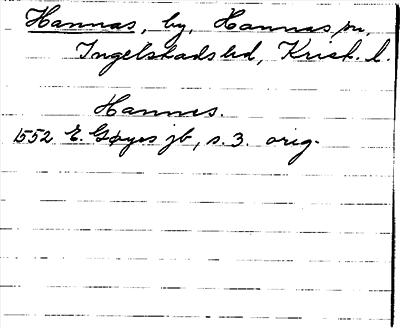 Hannas, by, Hannas sn,
Ingelstads hd, Krist. l.
Hannes.
1552 E. Gøyes jb, s. 3. orig.